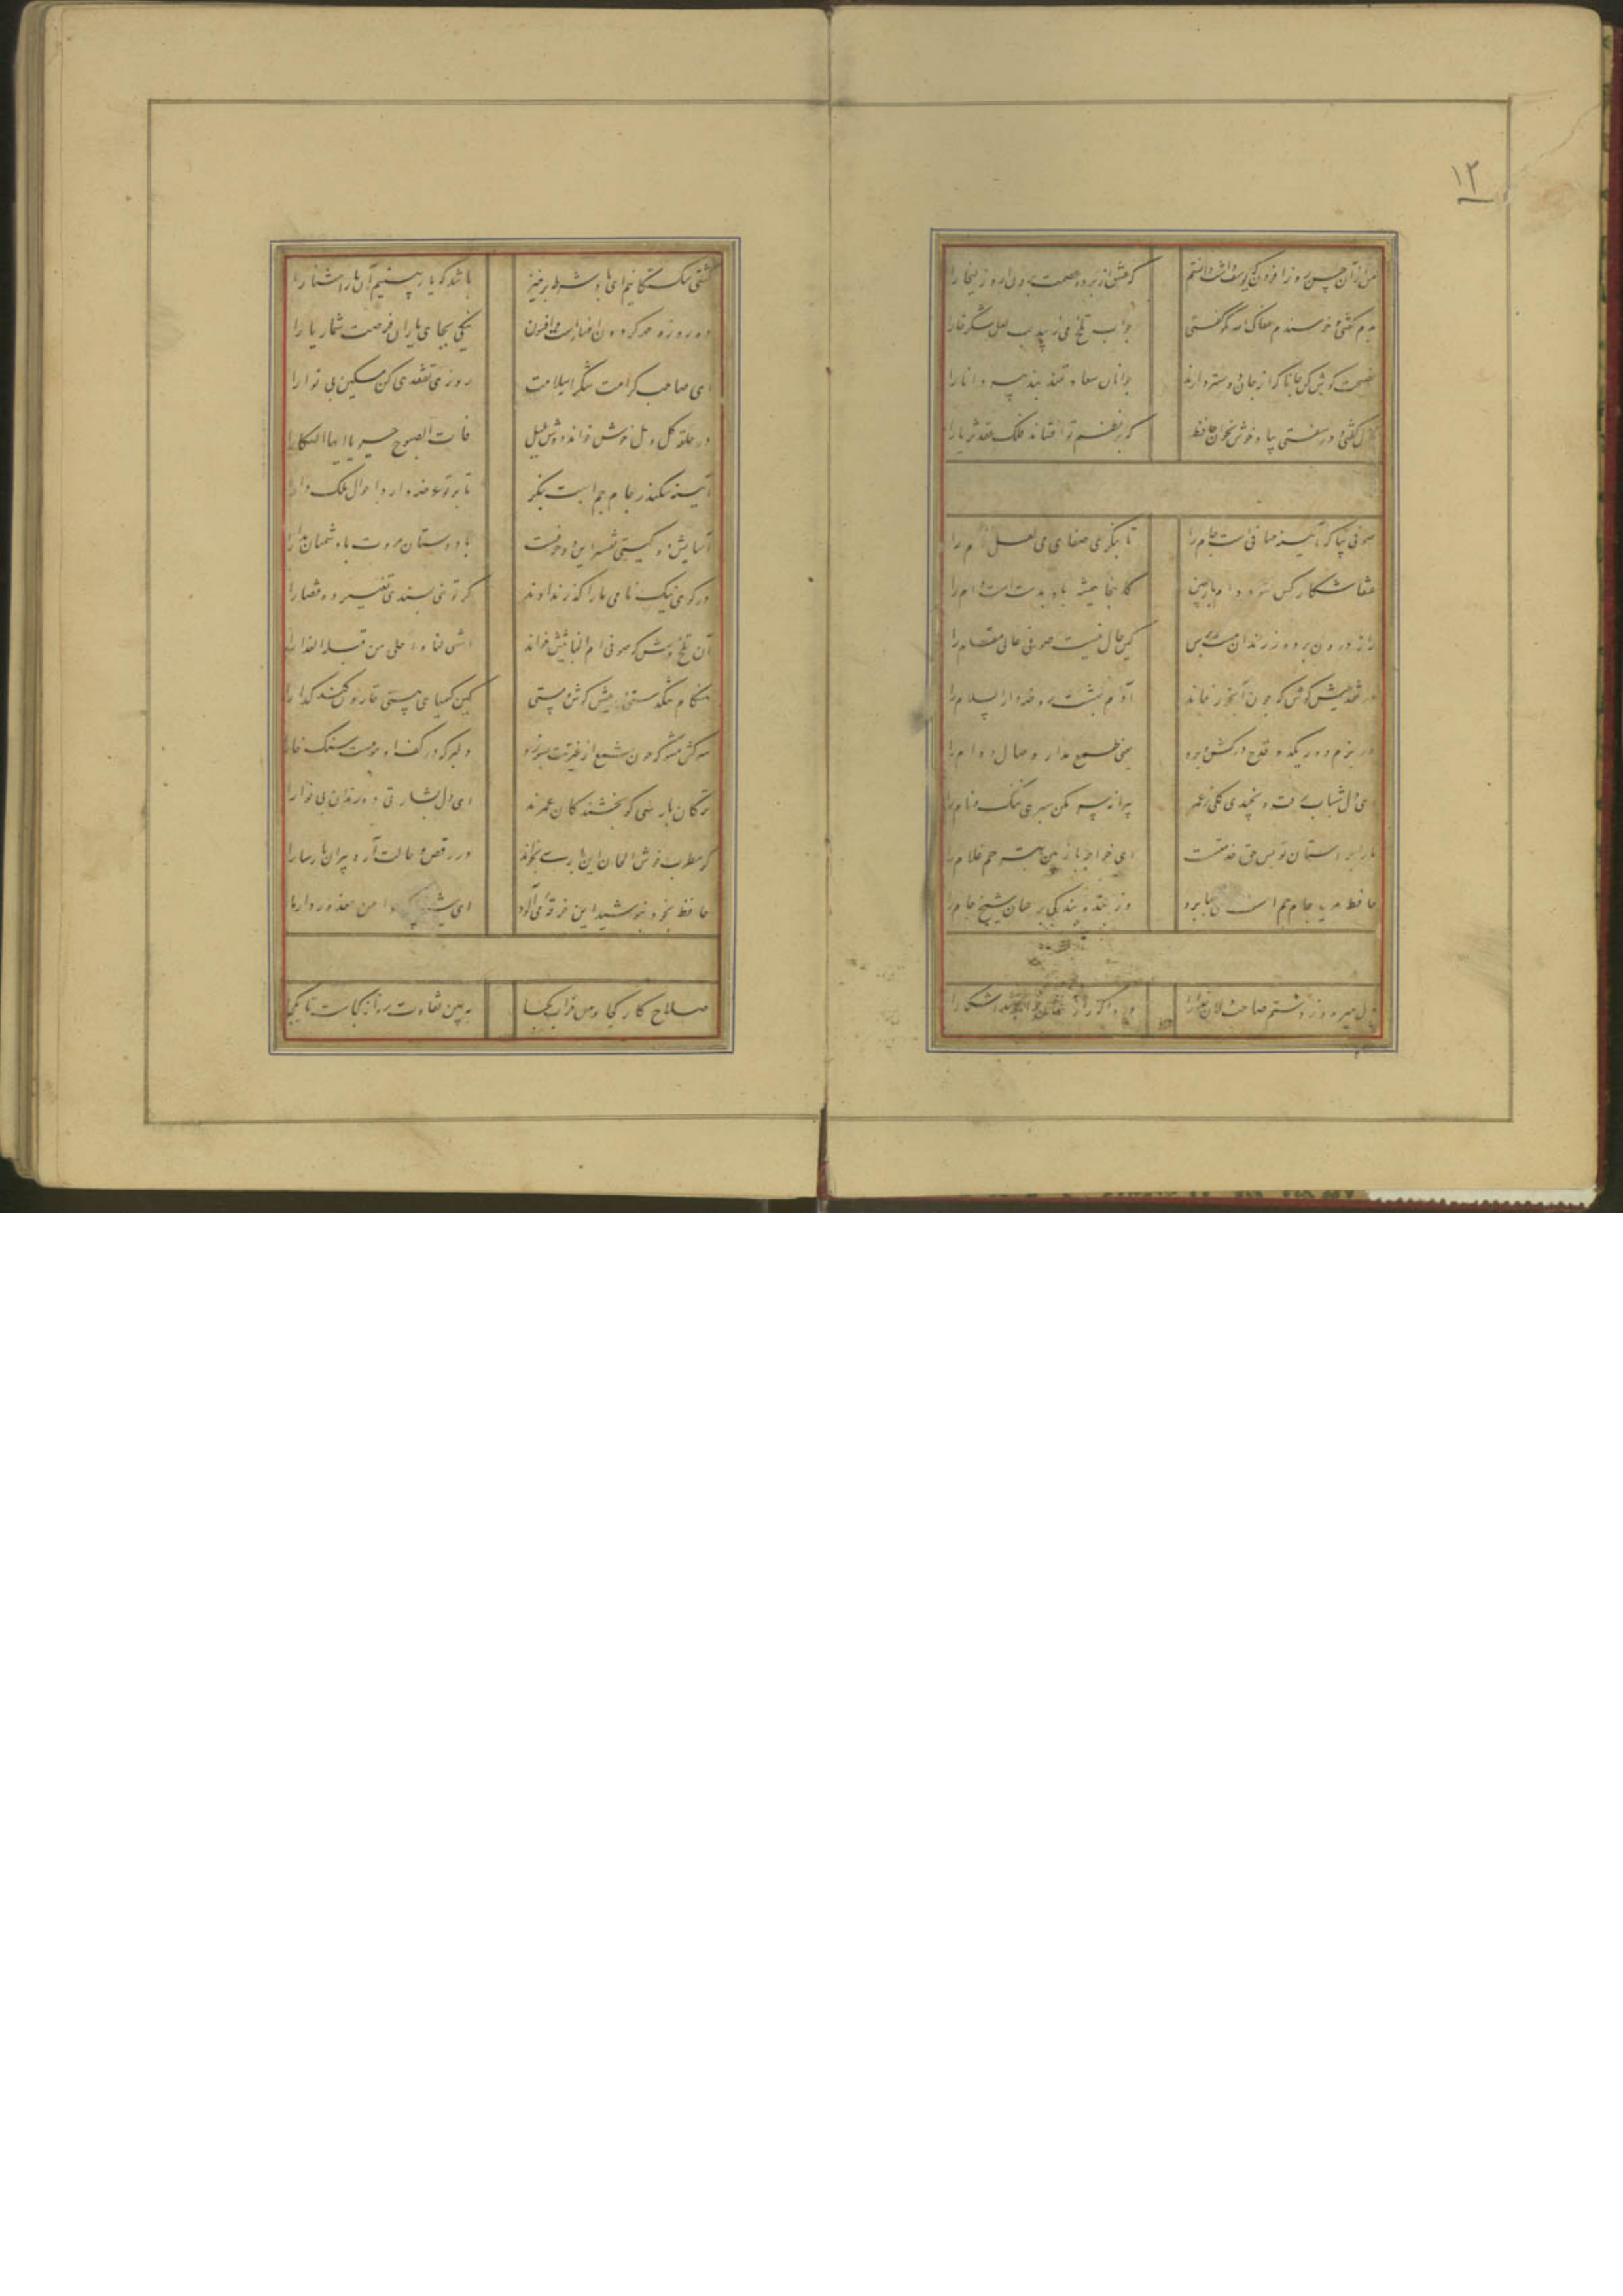 ۱۲
من از آن حسن روز افزون که یوسف داشت دانستم که عشق از پرده عصمت برون آرد زلیخا را
بدم گفتی و خرسندم عفاک الله نکو گفتی جواب تلخ می زیبد لب لعل شکرخارا
نصیحت گوش کن جانا که از جان دوستتر دارند جوانان سعادتمند پند پیر دانا را
غزل گفتی و در سفتی بیا و خوش بخوان حافظ که بر نظم تو افشاند فلک عقد ثریا را
صوفی بیا که آینه صافی است جام را تا بنگری صفای می لعل فام را
عنقا شکار کس نشود دام باز چین کانجا همیشه باد بدست است دام را
راز درون پرده ز رندان مست پرس کین حال نیست صوفی عالی مقام را
در عیش کوش که چون آبخور نماند آدم بهشت روضه دار السلام را
در بزم دور یکدو قدح درکش و برو یعنی طمع مدار وصال دوام را
ای دل شباب رفت و نچیدی گلی ز عمر پیرانه سر مکن هنری ننگ و نام را
ما را بر آستان تو بس حق خدمتست ای خواجه باز بین بترحم غلام را
حافظ مرید جام جم است ای صبا برو وز بنده بندگی برسان شیخ جام را
دل میرود ز دستم صاحب دلان خدا را دردا که راز پنهان خواهد شد آشکارا
کشتی شکستگانیم ای باد شرطه برخیز باشد که باز بینیم آن یار آشنا را
ده روزه مهر گردون افسانه است و افسون نیکی بجای یاران فرصت شمار یارا
ای صاحب کرامت شکرانه سلامت روزی تفقدی کن مسکین بی نوا را
در حلقه گل و مل خوش خواند دوش بلبل هات الصبوح حیوا یا ایها السکارا
آیینه سکندر جام جم است بنگر تا بر تو عرضه دارد احوال ملک دارا
آسایش دو گیتی تفسیر این دو حرفست با دوستان مروت با دشمنان مدارا
در کوی نیک نامی ما را گذر ندادند گر تو نمی پسندی تغییر ده قضا را
آن تلخ وش که صوفی ام الخبائثش خواند اشهی لنا و احلی من قبله العذارا
هنگام تنگدستی در عیش کوش و مستی کین کیمیای هستی قارون کند گدا را
سرکش مشو که چون شمع از غیرتت بسوزد دلبر که در کف او مومست سنگ خارا
ترکان پارسی گو بخشندگان عمرند ای دل بشارتی ده رندان بی نوا را
گر مطرب خوش الحان این پارسی بخواند در رقص و حالت آرد پیران پارسا را
حافظ بخود نپوشید این خرقه می آلود ای شیخ پاک دامن معذور دار ما را
صلاح کار کجا و من خراب کجا به بین تفاوت ره از کجاست تا بکجا